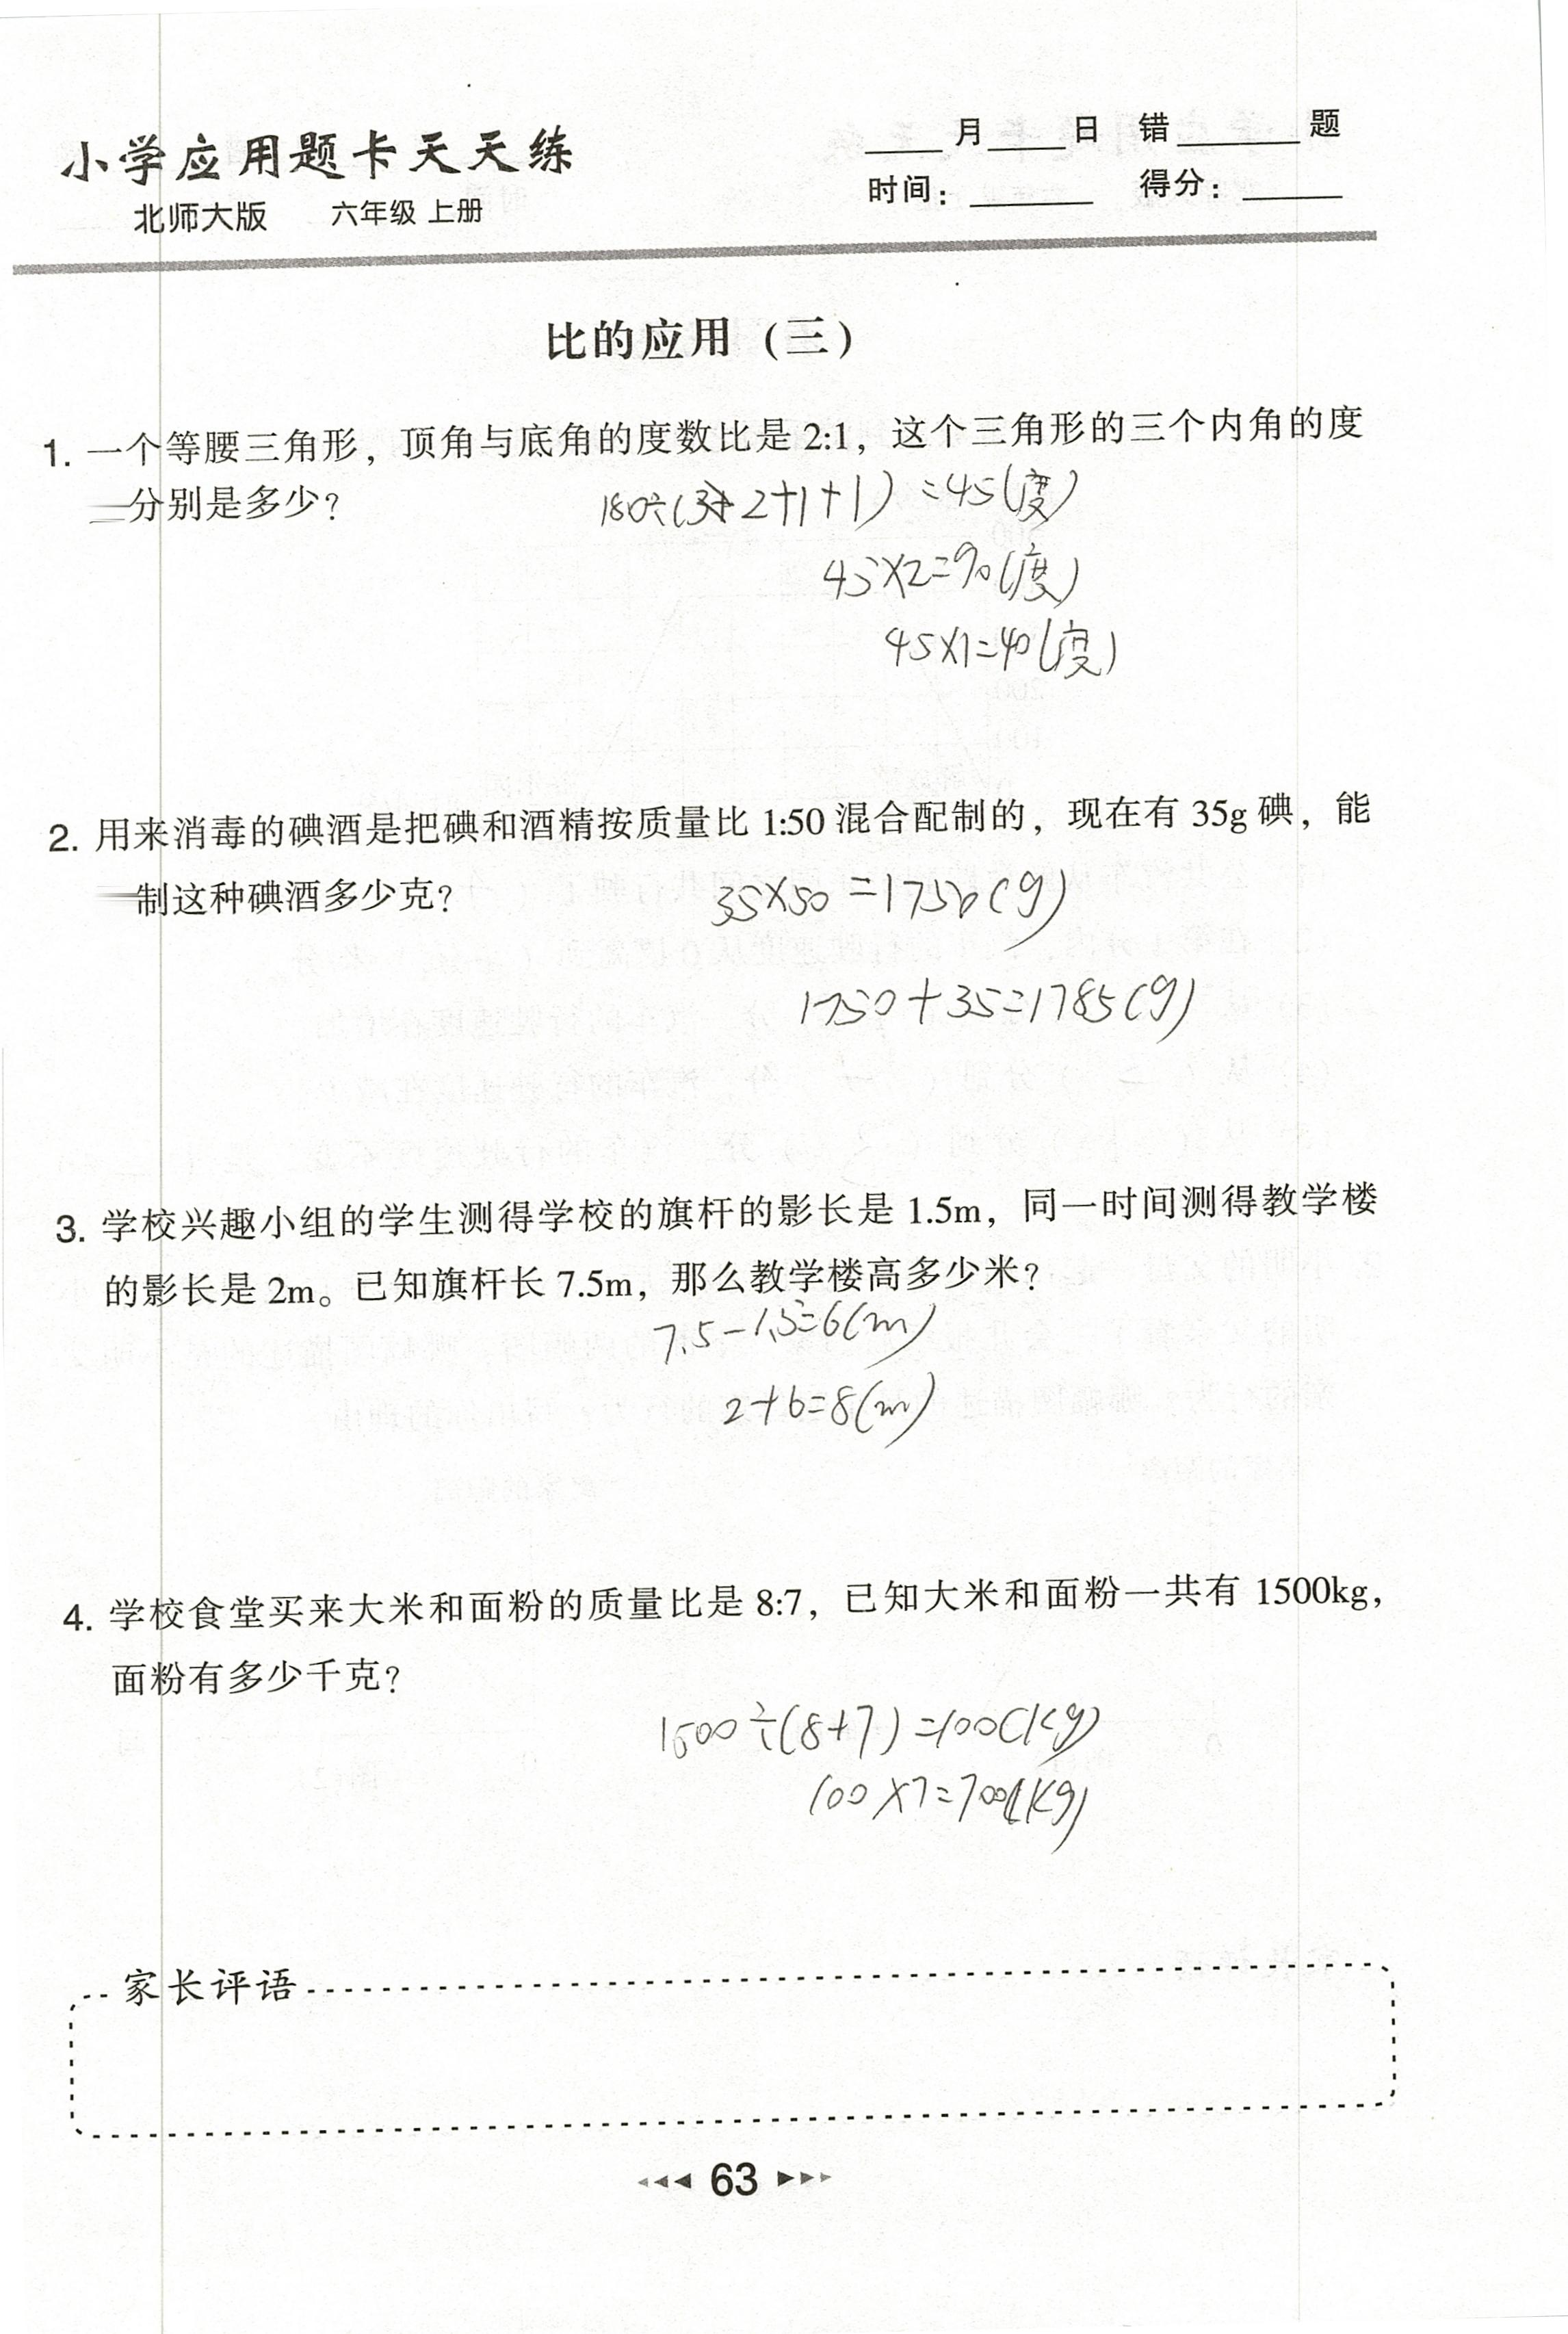 小学应用题卡天天练
北师大版 六年级 上册
____月____日 错______题
时间：______ 得分：_____
比的应用（三）
1. 一个等腰三角形，顶角与底角的度数比是 2:1，这个三角形的三个内角的度
分别是多少？
180÷( 2+1+1) =45(度)
45×2=90(度)
45×1=40(度)
2. 用来消毒的碘酒是把碘和酒精按质量比 1:50 混合配制的，现在有 35g 碘，能
制这种碘酒多少克？
35×50=1750(g)
1750+35=1785(g)
3. 学校兴趣小组的学生测得学校的旗杆的影长是 1.5m，同一时间测得教学楼
的影长是 2m。已知旗杆长 7.5m，那么教学楼高多少米？
7.5-1.5=6(m)
2+6=8(m)
4. 学校食堂买来大米和面粉的质量比是 8:7，已知大米和面粉一共有 1500kg，
面粉有多少千克？
1500÷(8+7)=100(kg)
100×7=700(kg)
家长评语
63